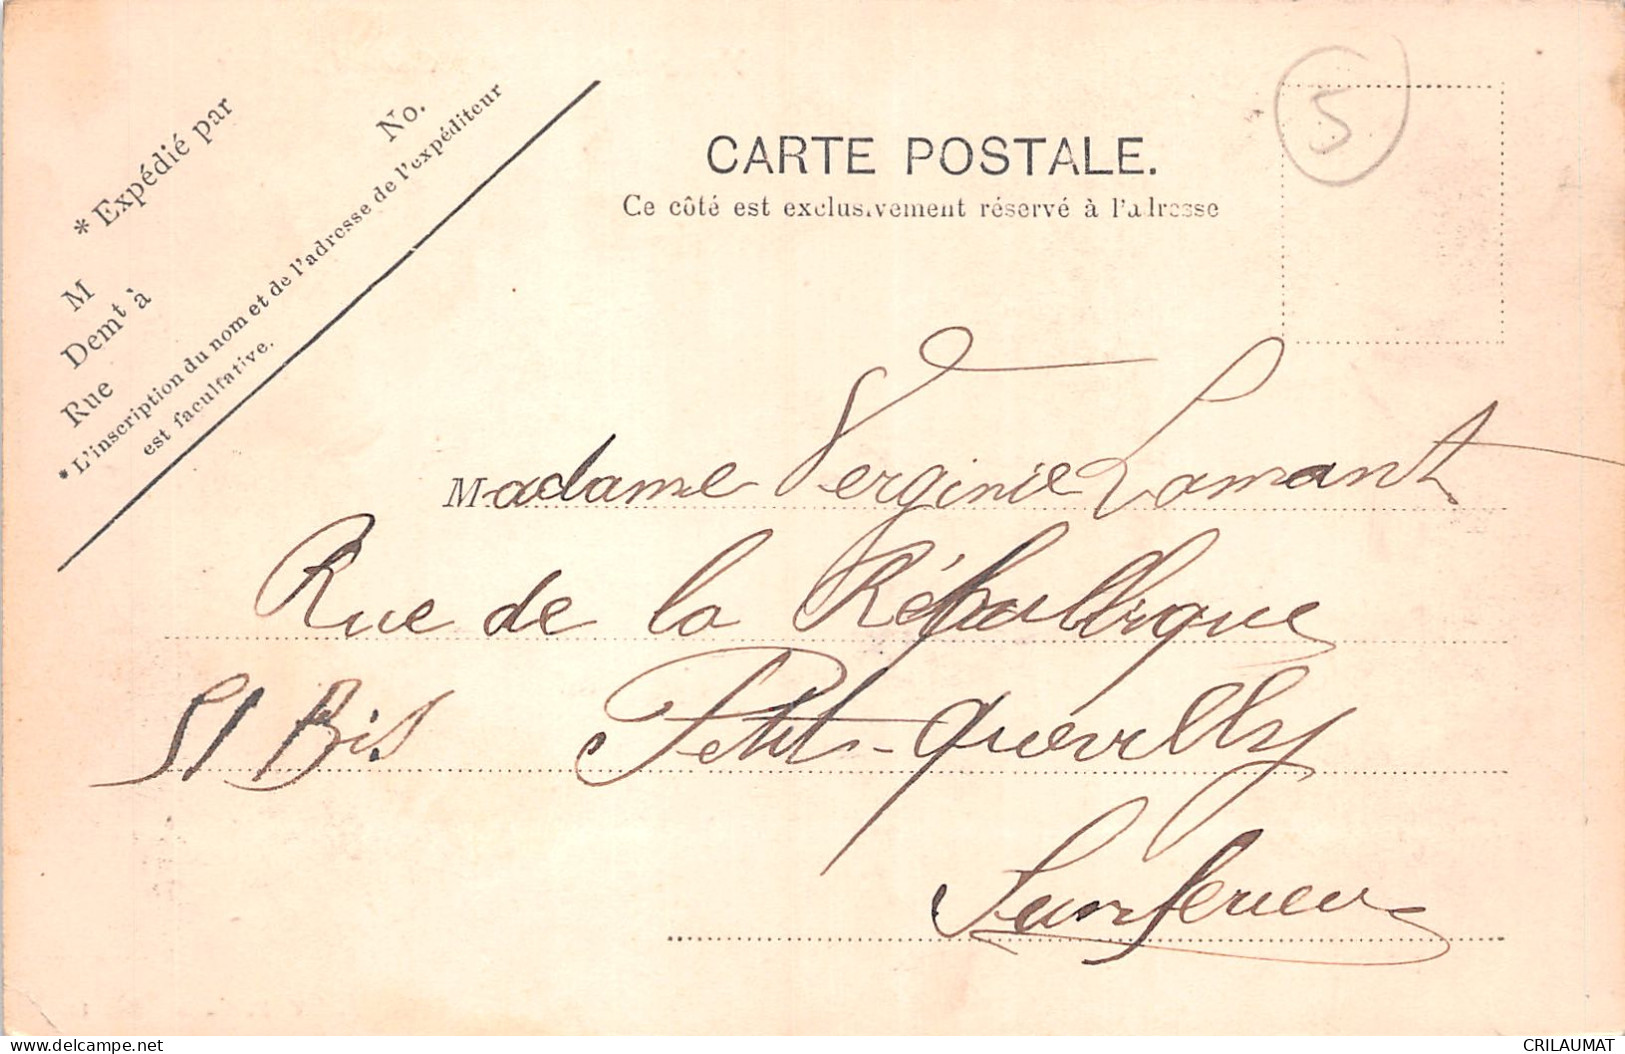 * Expédié par
No.
M
Demt à
Rue
* L'inscription du nom et de l'adresse de l'expéditeur
est facultative.
CARTE POSTALE.
Ce côté est exclusivement réservé à l'adresse
5
Madame Verginie Lamant
Rue de la République
51 Bis Petit-Quevilly
delcampe.net
CRILAUMAT